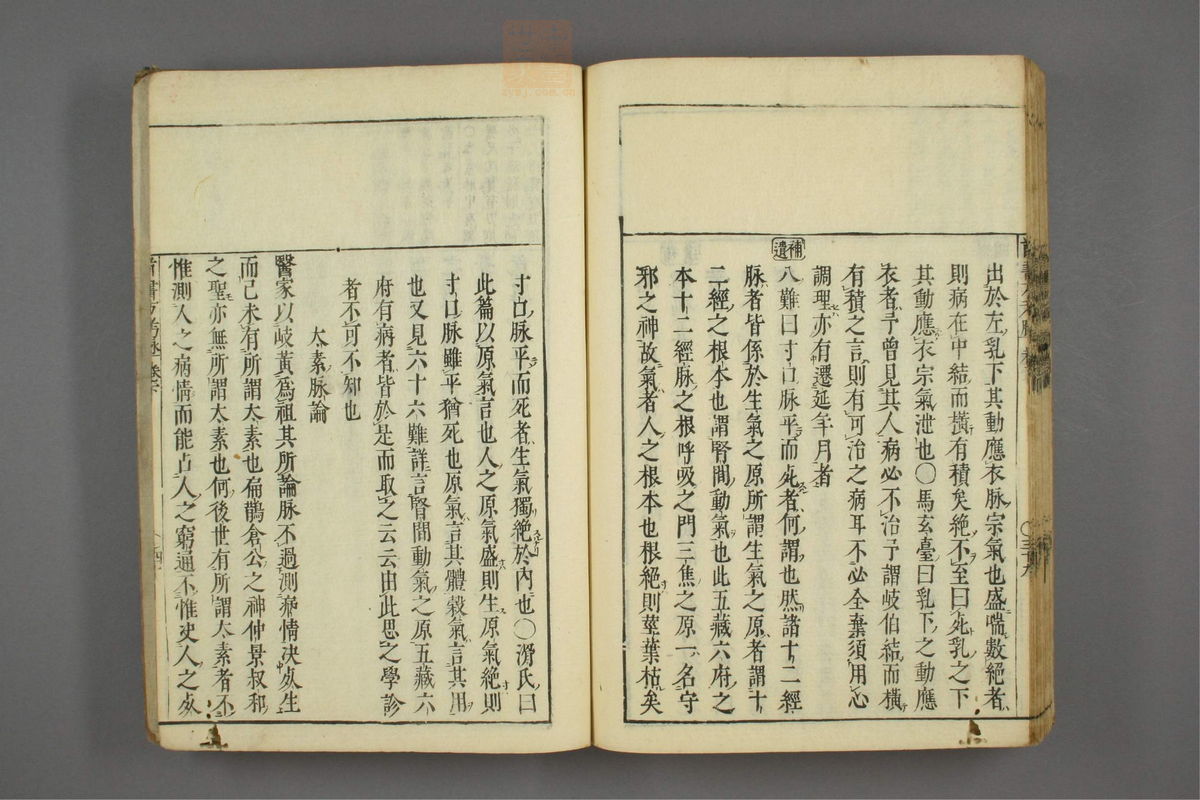 出於左乳下其動應衣脉宗氣也盛喘數絕者
則病在中結而橫有積矣絕不至曰死乳之下
其動應衣宗氣泄也○馬玄臺曰乳下之動應
衣者予曾見其人病必不治予謂岐伯結而橫
有積之言則有可治之病耳不必全棄須用心
調理亦有遷延年月者
補遺
八難曰寸口脉平而死者何謂也然諸十二經
脉者皆係於生氣之原所謂生氣之原者謂十
二經之根本也謂腎間動氣也此五藏六府之
本十二經脉之根呼吸之門三焦之原一名守
邪之神故氣者人之根本也根絕則莖葉枯矣
寸口脉平而死者生氣獨絕於內也○滑氏曰
此篇以原氣言也人之原氣盛則生原氣絕則
寸口脉雖平猶死也原氣言其體穀氣言其用
也又見六十六難詳言腎間動氣之原五藏六
府有病者皆於是而取之云云由此思之學診
者不可不知也
太素脉論
醫家以岐黃為祖其所論脉不過測病情決死生
而已未有所謂太素也扁鵲倉公之神仲景叔和
之聖亦無所謂太素也何後世有所謂太素者不
惟測人之病情而能占人之窮通不惟決人之死